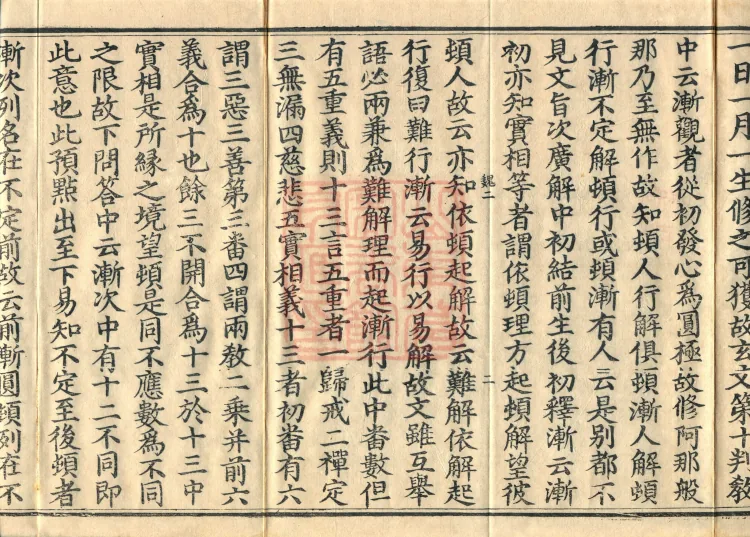 一日一月一生修之可獲故玄文第十判教
中云漸觀者從初發心爲圓極故修阿那般
那乃至無作故知頓人行解俱頓漸人解頓
行漸不定解頓行或頓漸有人云是別都不
見文旨次廣解中初結前生後初釋漸云漸
初亦知實相等者謂依頓理方起頓解望彼
魏二
二
頓人故云亦知依頓起解故云難解依解起
行復曰難行漸云易行以易解故文雖互舉
語必兩兼爲難解理而起漸行此中番數但
有五重義則十三言五重者一歸戒二禪定
三無漏四慈悲五實相義十三者初番有六
謂三惡三善第三番四謂兩敎二乗并前六
義合爲十也餘三不開合爲十三於十三中
實相是所縁之境望頓是同不應數爲不同
之限故下問答中云漸次中有十二不同即
此意也此預點出至下易知不定至後頓者
漸次列名在不定前故云前漸圓頓列在不